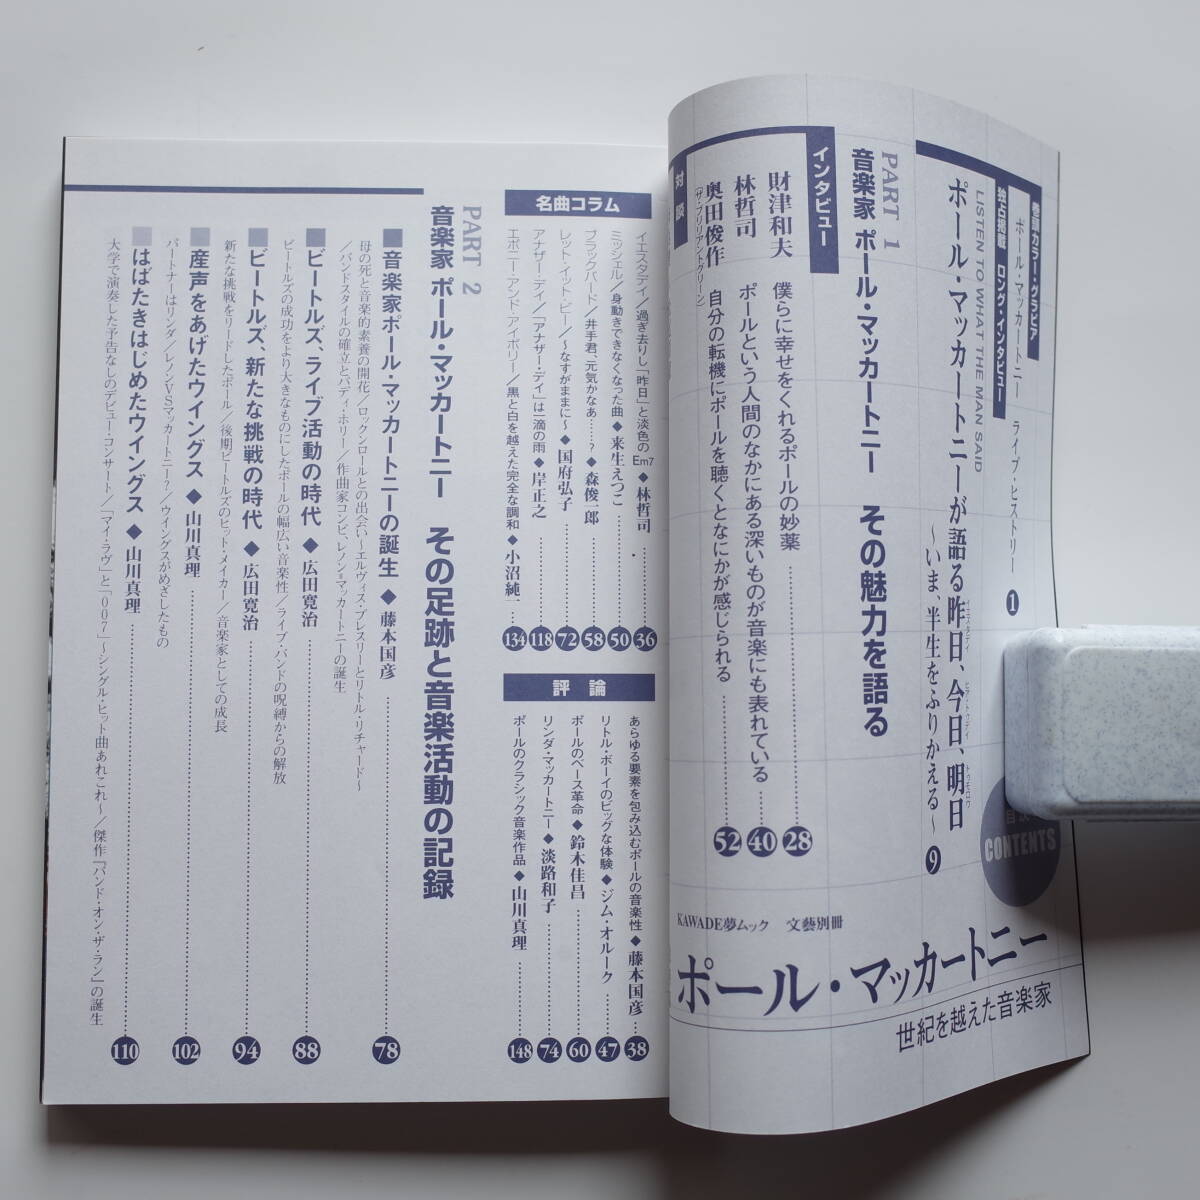 KAWADE夢ムック　文藝別冊
ポール・マッカートニー
世紀を越えた音楽家
CONTENTS
巻頭カラー・グラビア
ポール・マッカートニー　ライブ・ヒストリー　1
独占掲載　ロング・インタビュー
LISTEN TO WHAT THE MAN SAID
ポール・マッカートニーが語る昨日、今日、明日
イエスタデイ　トゥモロウ
〜いま、半生をふりかえる〜　9
PART 1
音楽家 ポール・マッカートニー　その魅力を語る
インタビュー
財津和夫　僕らに幸せをくれるポールの妙薬……28
林哲司　ポールという人間のなかにある深いものが音楽にも表れている……40
対談
奥田俊作　自分の転機にポールを聴くとなにかが感じられる……52
(ザ・ブリリアントグリーン)
名曲コラム
イエスタデイ／過ぎ去りし「昨日」と淡色のEm7◆林哲司……36
ミッシェル／身動きできなくなった曲◆来生えつこ……50
ブラックバード／井手君、元気かなあ……？◆森俊一郎……58
レット・イット・ビー／〜なすがままに〜◆国府弘子……72
アナザー・デイ／「アナザー・デイ」は一滴の雨◆岸正之……118
エボニー・アンド・アイボリー／黒と白を越えた完全な調和◆小沼純一……134
評論
あらゆる要素を包み込むポールの音楽性◆藤本国彦……38
リトル・ボーイのビッグな体験◆ジム・オルーク……47
ポールのベース革命◆鈴木佳昌……60
リンダ・マッカートニー◆淡路和子……74
ポールのクラシック音楽作品◆山川真理……148
PART 2
音楽家 ポール・マッカートニー　その足跡と音楽活動の記録
■音楽家ポール・マッカートニーの誕生◆藤本国彦……78
母の死と音楽的素養の開花／ロックンロールとの出会い〜エルヴィス・プレスリーとリトル・リチャード〜
／バンドスタイルの確立とバディ・ホリー／作曲家コンビ、レノン＝マッカートニーの誕生
■ビートルズ、ライブ活動の時代◆広田寛治……88
ビートルズの成功をより大きなものにしたポールの幅広い音楽性／ライブ・バンドの呪縛からの解放
■ビートルズ、新たな挑戦の時代◆広田寛治……94
新たな挑戦をリードしたポール／後期ビートルズのヒット・メイカー／音楽家としての成長
■産声をあげたウイングス◆山川真理……102
パートナーはリンダ／レノンVSマッカートニー？／ウイングスがめざしたもの
■はばたきはじめたウイングス◆山川真理……110
大学で演奏した予告なしのデビュー・コンサート／「マイ・ラヴ」と「007」〜シングル・ヒット曲あれこれ〜／傑作『バンド・オン・ザ・ラン』の誕生